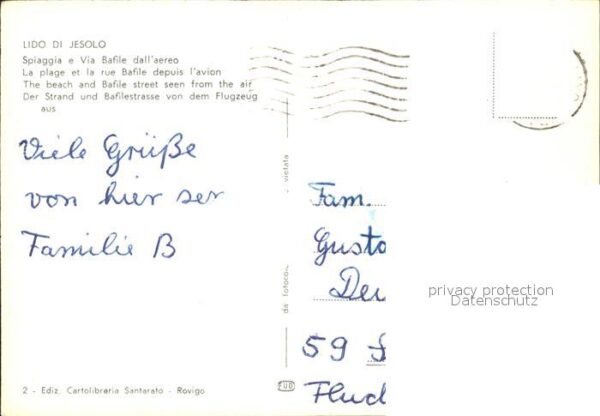 LIDO DI JESOLO
Spiaggia e Via Bafile dall'aereo
La plage et la rue Bafile depuis l'avion
The beach and Bafile street seen from the air
Der Strand und Bafilestrasse von dem Flugzeug
aus
Viele Grüße
von hier
Familie B
2 - Ediz. Cartolibreria Santarato - Rovigo
vietata
da fotocol
Fam.
Gusto
59
privacy protection
Datenschutz